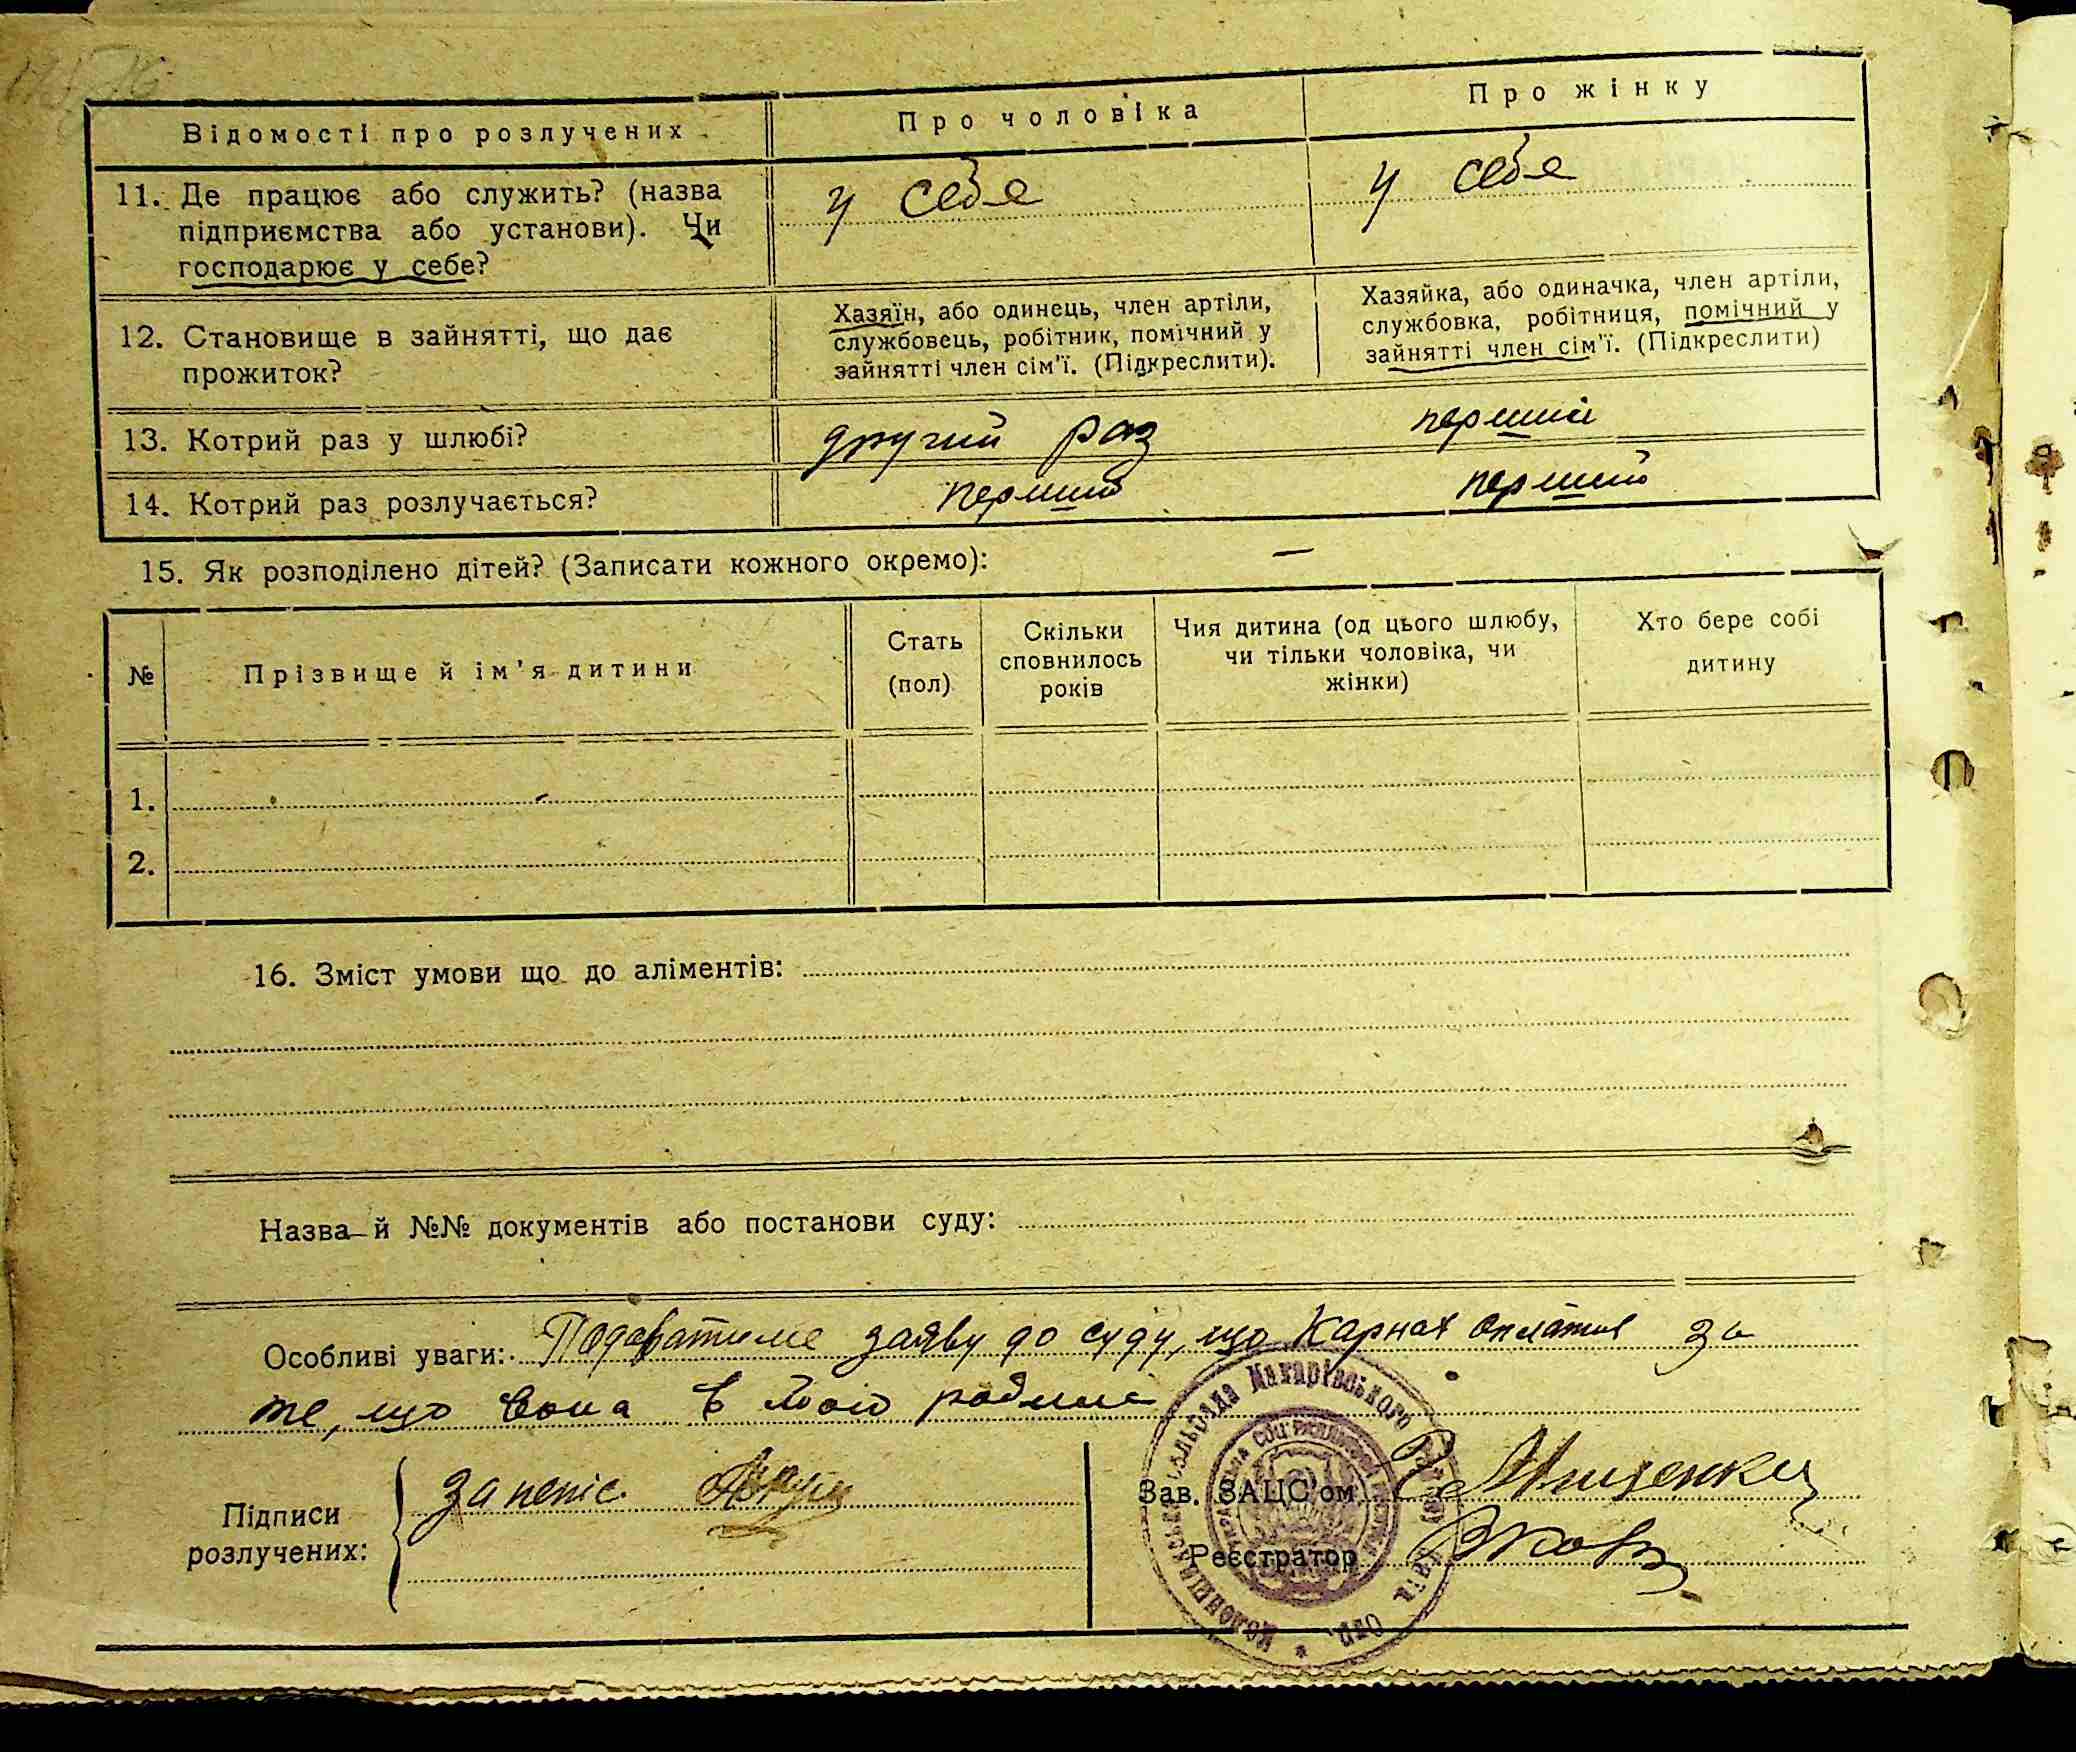 Відомості про розлучених
Про чоловіка
Про жінку
11. Де працює або служить? (назва
підприємства або установи). Чи
господарює у себе?
у себе
у себе
12. Становище в зайнятті, що дає
прожиток?
Хазяїн, або одинець, член артіли,
службовець, робітник, помічний у
зайнятті член сім'ї. (Підкреслити).
Хазяйка, або одиначка, член артіли,
службовка, робітниця, помічний у
зайнятті член сім'ї. (Підкреслити)
13. Котрий раз у шлюбі?
другий раз
перший
14. Котрий раз розлучається?
перший
перший
15. Як розподілено дітей? (Записати кожного окремо): —
№
Прізвище й ім'я дитини
Стать
(пол)
Скільки
сповнилось
років
Чия дитина (од цього шлюбу,
чи тільки чоловіка, чи
жінки)
Хто бере собі
дитину
1.
2.
16. Зміст умови що до аліментів:
Назва й №№ документів або постанови суду:
Особливі уваги: Подаватиме заяву до суду, що Карнах оплатив за
те, що вона в його
Підписи
розлучених:
Зав. ЗАЦС'ом
Реєстратор
сільрада Макарівського